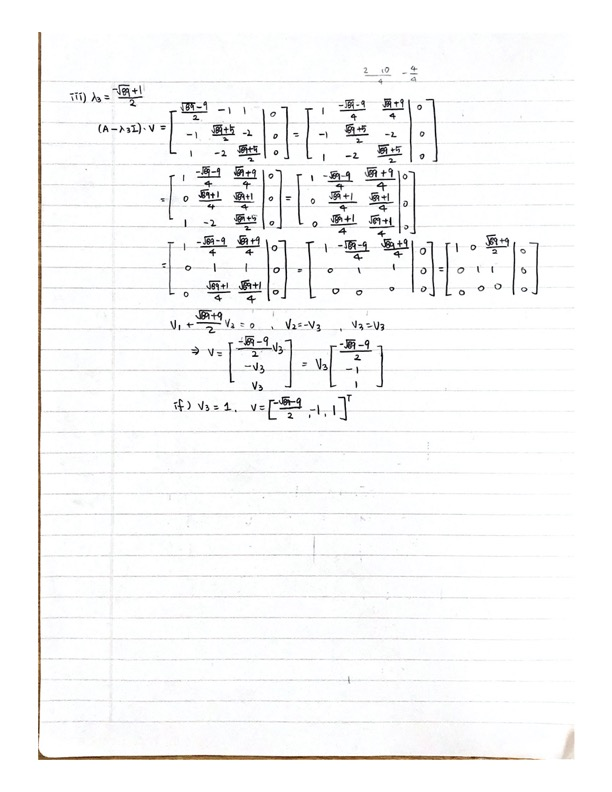 2 10 / 4 - 4/4
iii) λ3 = (-√89+1)/2
(A-λ3I)·V = [ (√89-9)/2 -1 1 | 0 ; -1 (√89+5)/2 -2 | 0 ; 1 -2 (√89+5)/2 | 0 ] = [ 1 (-√89-9)/4 (√89+9)/4 | 0 ; -1 (√89+5)/2 -2 | 0 ; 1 -2 (√89+5)/2 | 0 ]
= [ 1 (-√89-9)/4 (√89+9)/4 | 0 ; 0 (√89+1)/4 (√89+1)/4 | 0 ; 1 -2 (√89+5)/2 | 0 ] = [ 1 (-√89-9)/4 (√89+9)/4 | 0 ; 0 (√89+1)/4 (√89+1)/4 | 0 ; 0 (√89+1)/4 (√89+1)/4 | 0 ]
= [ 1 (-√89-9)/4 (√89+9)/4 | 0 ; 0 1 1 | 0 ; 0 (√89+1)/4 (√89+1)/4 | 0 ] = [ 1 (-√89-9)/4 (√89+9)/4 | 0 ; 0 1 1 | 0 ; 0 0 0 | 0 ] = [ 1 0 (√89+9)/2 | 0 ; 0 1 1 | 0 ; 0 0 0 | 0 ]
V1 + (√89+9)/2 V2 = 0 , V2=-V3 , V3=V3
⇒ V = [ (-√89-9)/2 V3 ; -V3 ; V3 ] = V3 [ (-√89-9)/2 ; -1 ; 1 ]
if) V3 = 1, V = [ (-√89-9)/2 , -1, 1 ]^T